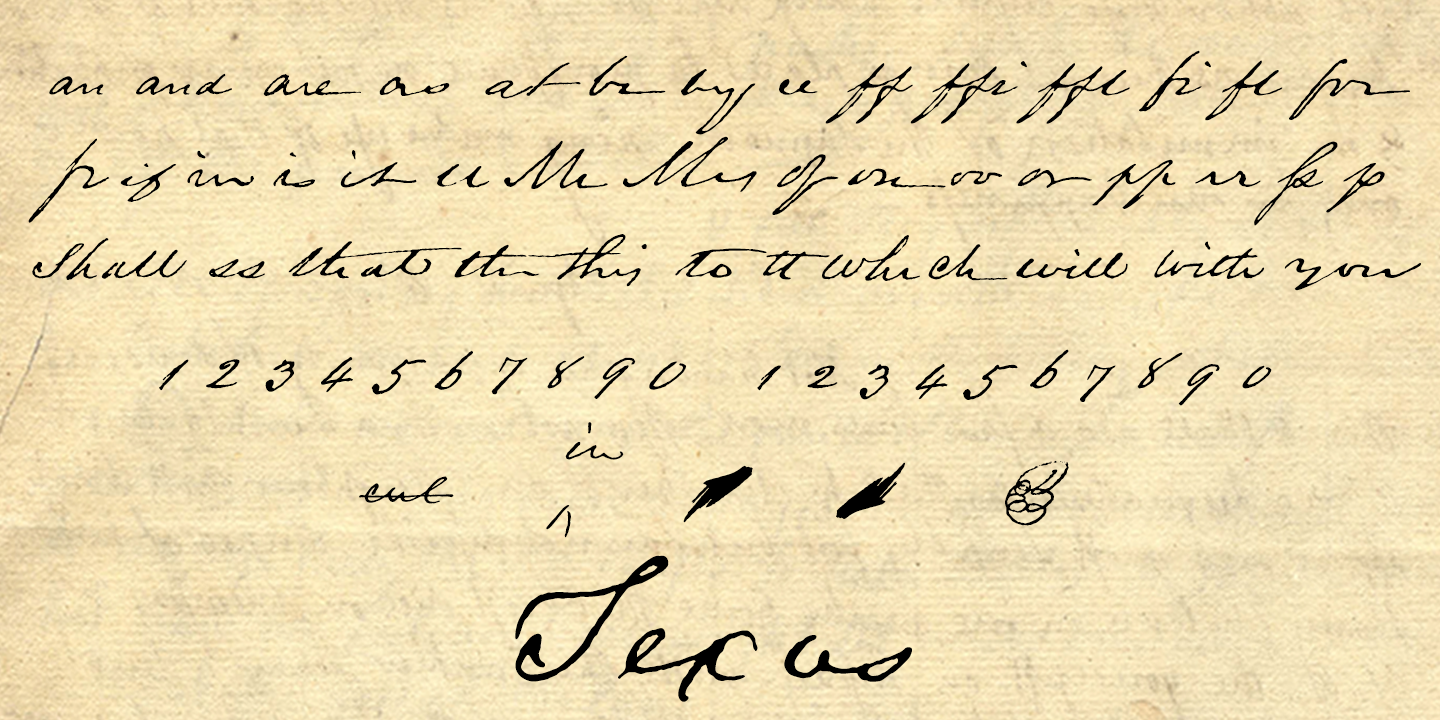 an and are as at be by ee ff ffi ffl fi fl for
fr if in is it ll Mr Mrs of on oo or pp rr ſs
Shall ss that the this to tt which will with you
1 2 3 4 5 6 7 8 9 0 1 2 3 4 5 6 7 8 9 0
in
cut ^
Texas